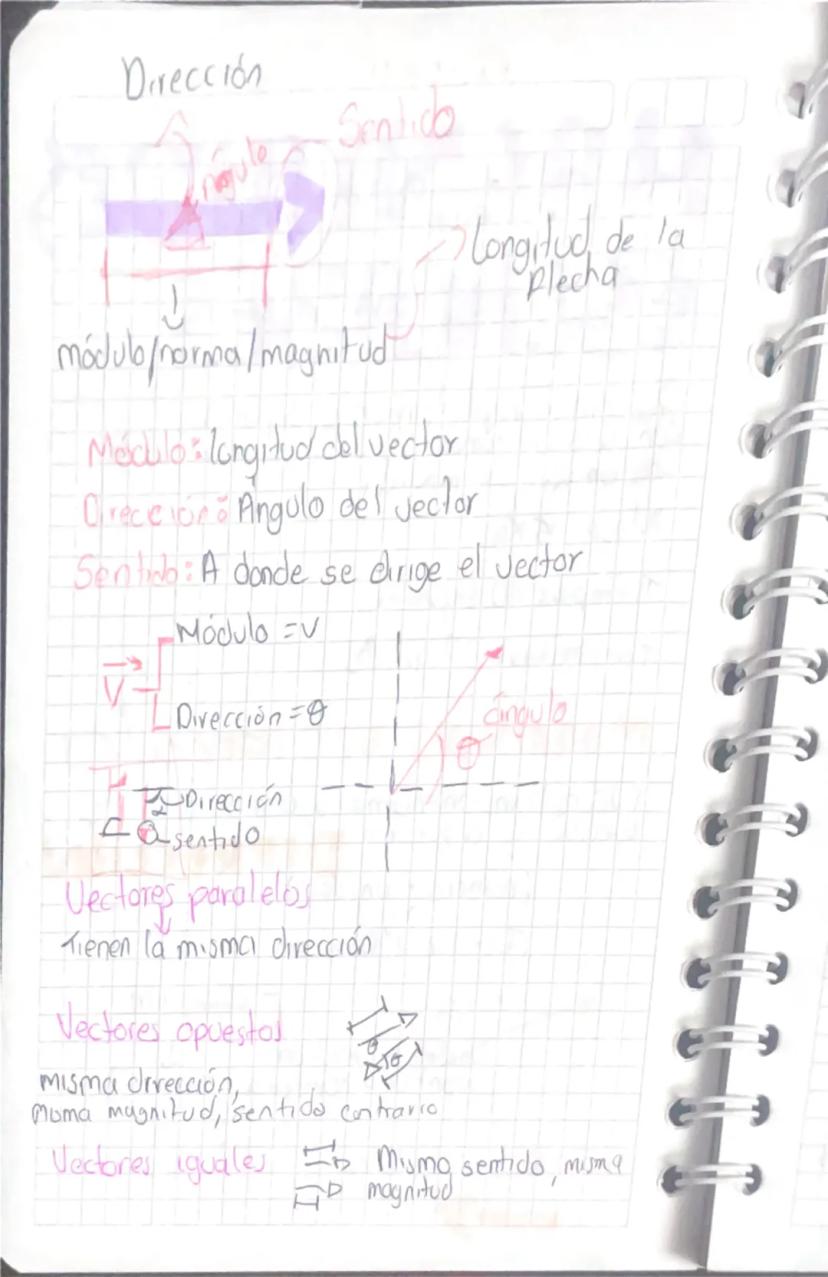 Dirección
Sentido
ángulo
Longitud de la
flecha
módulo/norma/magnitud
Módulo: longitud del vector
Dirección: Ángulo del vector
Sentido: A donde se dirige el vector
Módulo = V
V
Dirección = θ
ángulo
θ
Dirección
sentido
Vectores paralelos
Tienen la misma dirección
Vectores opuestos
θ
θ
misma dirección,
misma magnitud, sentido contrario
Vectores iguales
Mismo sentido, misma
magnitud